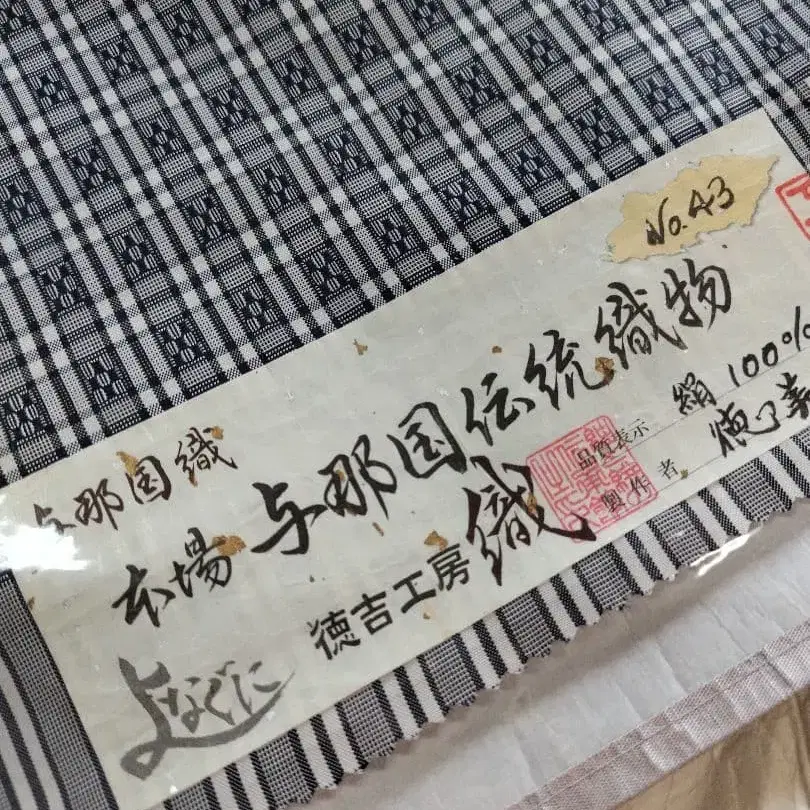 No.43
与那国織
本場 与那国伝統織物
徳吉工房 織
品質表示 絹100%
製作者 徳
よなぐに